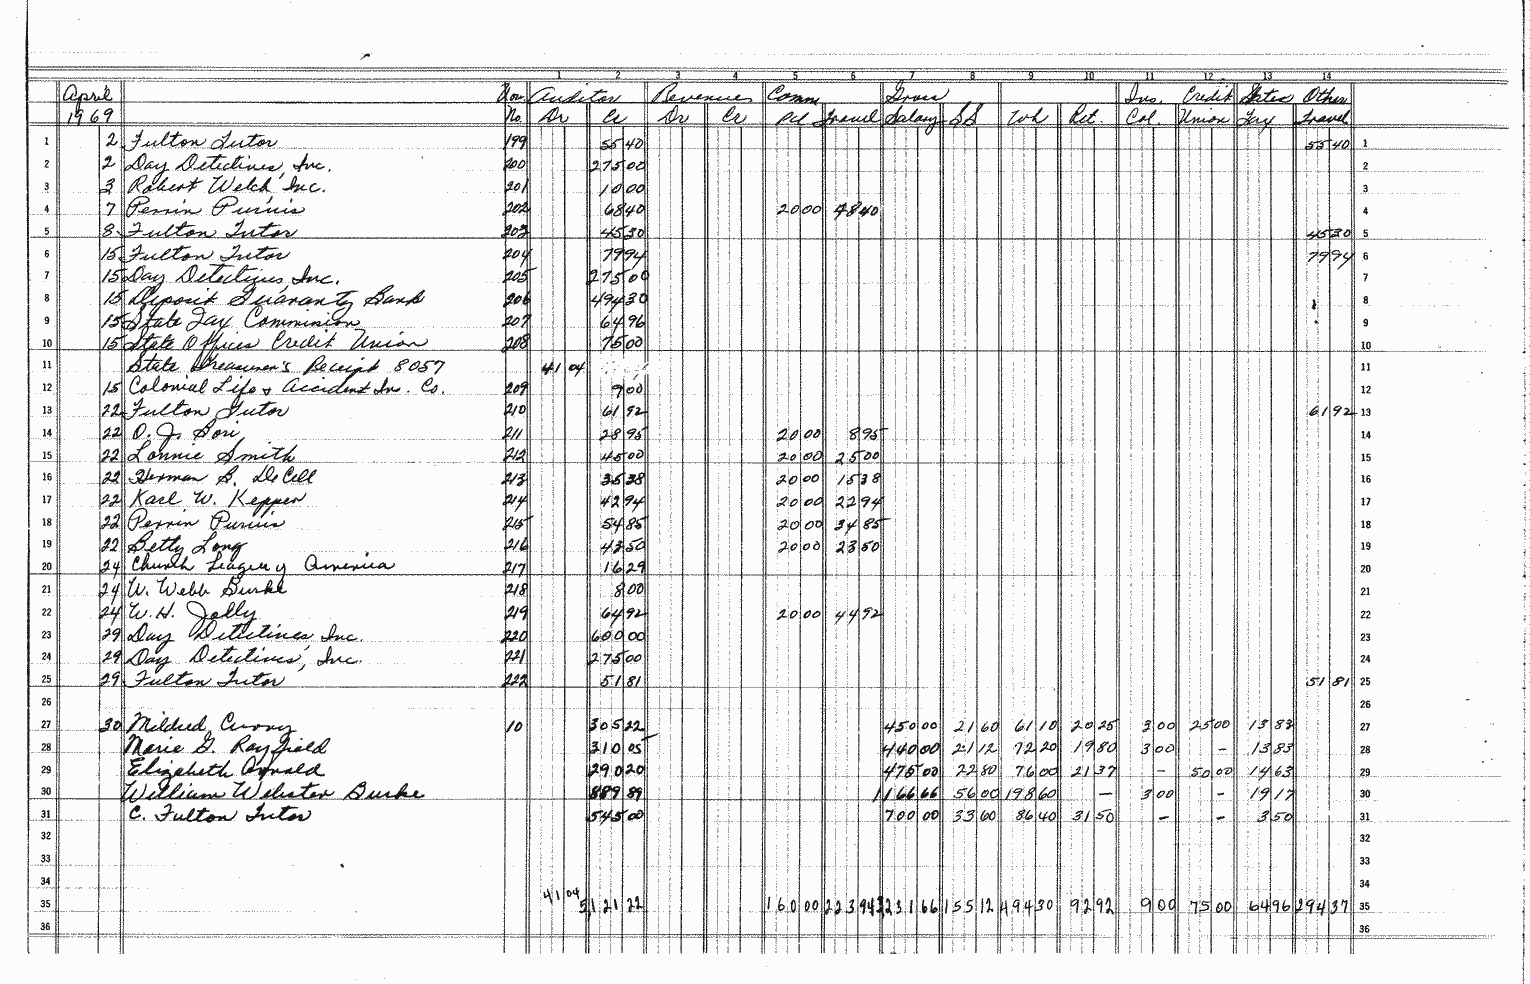 1 2 3 4 5 6 7 8 9 10 11 12 13 14
April Vou. Auditor Revenues Comm Gross Ins. Credit States Other
1969 No. Dr Cr Dr Cr Pd Travel Salary SS Wh Ret. Col. Union Tax Travel
1 2 Fulton Tutor 199 55 40 55 40 1
2 2 Day Detectives, Inc. 200 275 00 2
3 3 Robert Welch, Inc. 201 10 00 3
4 7 Perrin Purvis 202 68 40 20 00 48 40 4
5 8 Fulton Tutor 203 45 30 45 30 5
6 15 Fulton Tutor 204 79 94 79 94 6
7 15 Day Detectives, Inc. 205 275 00 7
8 15 Deposit Guaranty Bank 206 494 30 8
9 15 State Tax Commission 207 64 96 9
10 15 State Offices Credit Union 208 75 00 10
11 State Treasurer's Receipt 8057 41 04 11
12 15 Colonial Life & Accident In. Co. 209 9 00 12
13 22 Fulton Tutor 210 61 92 61 92 13
14 22 O. J. Sori 211 28 95 20 00 8 95 14
15 22 Lonnie Smith 212 45 00 20 00 25 00 15
16 22 Herman B. DeCell 213 35 38 20 00 15 38 16
17 22 Karl W. Kepper 214 42 94 20 00 22 94 17
18 22 Perrin Purvis 215 54 85 20 00 34 85 18
19 22 Betty Long 216 43 50 20 00 23 50 19
20 24 Church League of America 217 16 29 20
21 24 W. Webb Burke 218 8 00 21
22 24 W. H. Jolly 219 64 92 20 00 44 92 22
23 29 Day Detectives, Inc. 220 600 00 23
24 29 Day Detectives, Inc. 221 275 00 24
25 29 Fulton Tutor 222 51 81 51 81 25
26 26
27 30 Mildred Curry 10 305 22 450 00 21 60 61 10 20 25 3 00 25 00 13 83 27
28 Marie G. Rayfield 310 05 440 00 21 12 72 20 19 80 3 00 - 13 83 28
29 Elizabeth Arnold 290 20 475 00 22 80 76 00 21 37 - 50 00 14 63 29
30 William Webster Burke 889 89 1166 66 56 00 198 60 - 3 00 - 19 17 30
31 C. Fulton Tutor 545 00 700 00 33 60 86 40 31 50 - - 3 50 31
32 32
33 33
34 41 04 34
35 5121 22 160 00 223 94 3231 66 155 12 494 30 92 92 9 00 75 00 64 96 294 37 35
36 36